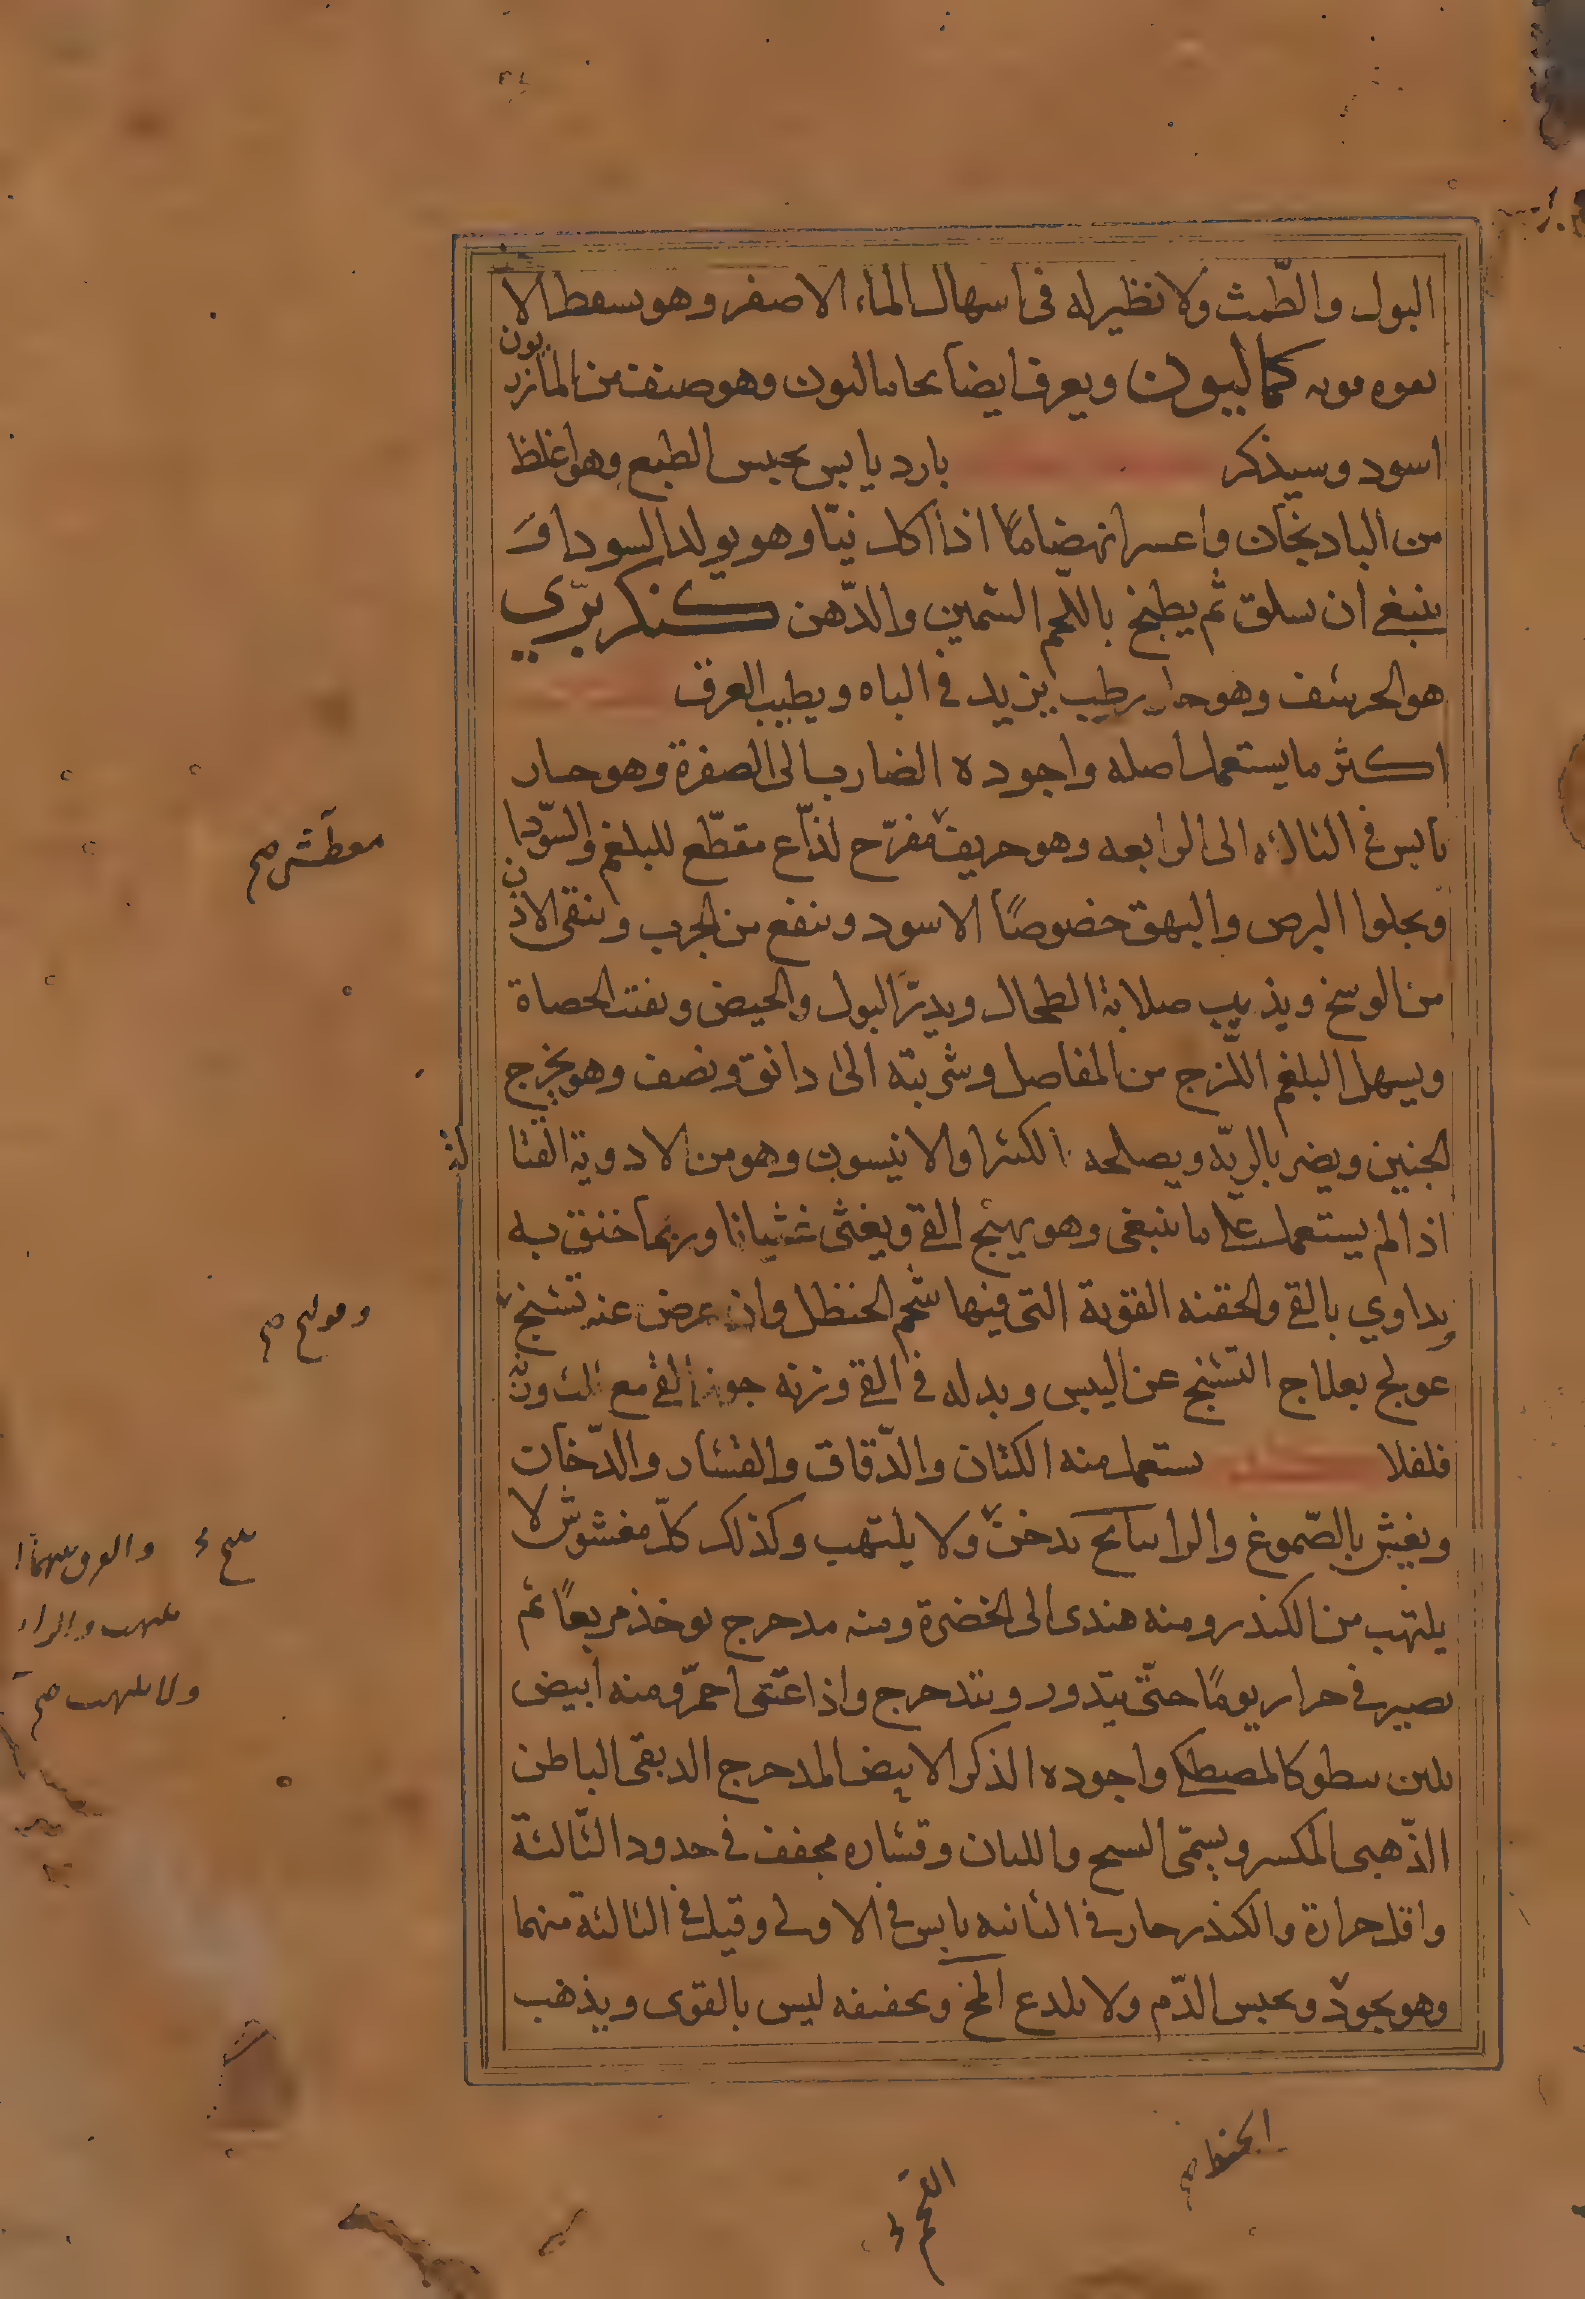 البول والطّمث ولا نظير له فى اسهال الماء الاصفر وهو يسقط الا
بقوه قويه كماليون ويعرف ايضا بخاماليون وهو صنف من المازريون
اسود وسيذكر بارد يابس يحبس الطبع وهو اغلظ
من الباذنجان واعسر انهضامًا اذا اكل نيّا وهو يولد السودا و
ينبغى ان يسلق ثم يطبخ باللحم السّمين والدّهن كنكر برّي
هو الحرشف وهو حار رطب يزيد فى الباه ويطيب العرق
اكثر ما يستعمل اصله واجوده الضارب الى الصفرة وهو حار
يابس فى الثالثه الى الرابعه وهو حريف مقرّح لذّاع مقطّع للبلغم والسّودا
ويجلوا البرص والبهق خصوصًا الاسود وينفع من الجرب وينقى الاذن
من الوسخ ويذيب صلابة الطحال ويدرّ البول والحيض ويفتت الحصاة
ويسهل البلغم اللّزج من المفاصل وشربته الى دانق ونصف وهو يخرج
الجنين ويضر بالريّه ويصلحه الكثيرا والانيسون وهو من الادوية القتا
لة
اذا لم يستعمل على ما ينبغى وهو يهيّج القى ويغثى غثيانا وربما خنق به
يداوي بالقى والحقنه القوية التى فيها شحم الحنظل وان عرض عنه تشنج
عولج بعلاج التشنج عن اليبس وبدله فى القى وزنه جوز القى مع ثلث وزنه
فلفلا يستعمل منه اللبان والدّقاق والقشار والدّخان
ويغش بالصّموغ والراتيانج يدخن ولا يلتهب وكذلك كلّ مغشوش لا
يلتهب من الكندر ومنه هندى الى الخضرة ومنه مدحرج يوخذ مربعًا ثم
يصير فى جرار يومًا حتّى يتدور ويتدحرج واذا عتق احمرّ ومنه ابيض
يلين كالمصطكى واجوده الذكر الابيض المدحرج الدبقى الباطن
الذّهبى المكسر ويسمّى واللبان وقشاره مجفف فى حدود الثّالثة
واقل حرارة والكندر حار فى الثانيه يابس فى الاولى وقيل فى الثالثة منهما
وهو يجود ويحبس الدّم ولا يلدع وتجفيفه ليس بالقوى ويذهب
معطّش صح
صح
ولا يلتهب صح